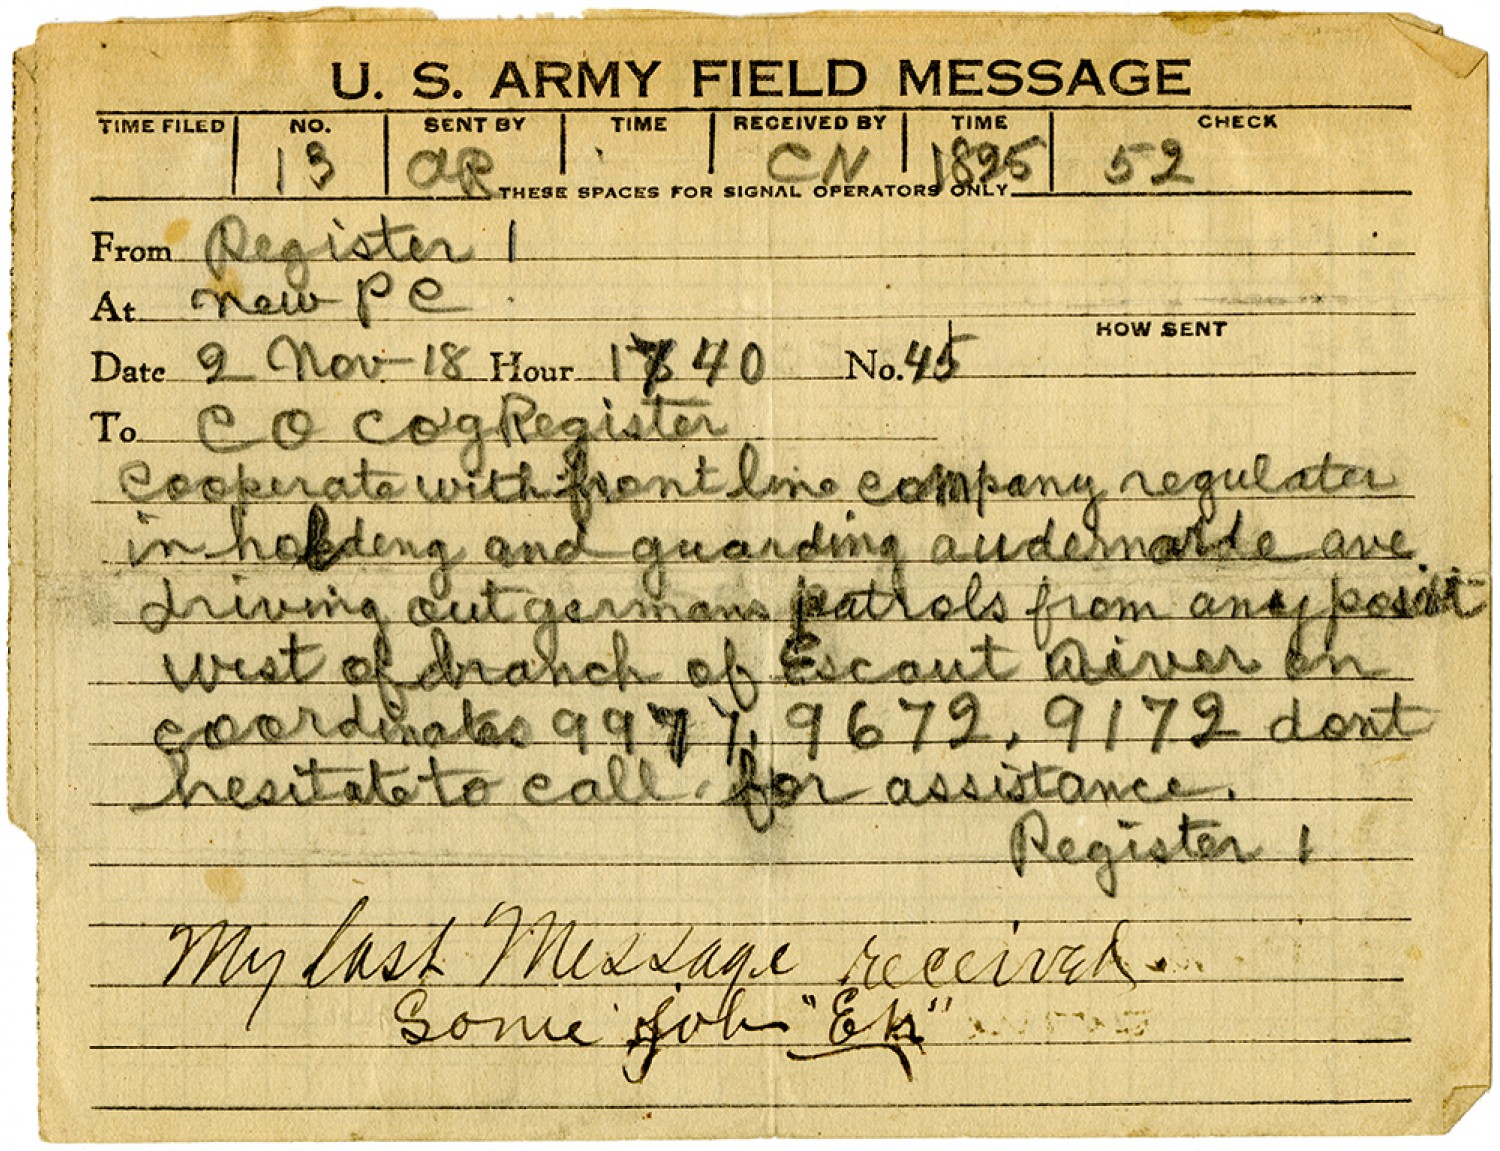 U. S. ARMY FIELD MESSAGE
TIME FILED NO. SENT BY TIME RECEIVED BY TIME CHECK
13 CN 1825 52
THESE SPACES FOR SIGNAL OPERATORS ONLY
From Register 1
At new P C
HOW SENT
Date 2 Nov-18 Hour 1740 No. 45
To C O Co g Register
Cooperate with front line company regulater
in holdeng and guarding audemarde ave
driving out germans patrols from any point
west of branch of Escaut River on
coordinates 9977, 9672, 9172 dont
hesitate to call for assistance.
Register 1
My last Message received
Some job "Eh"